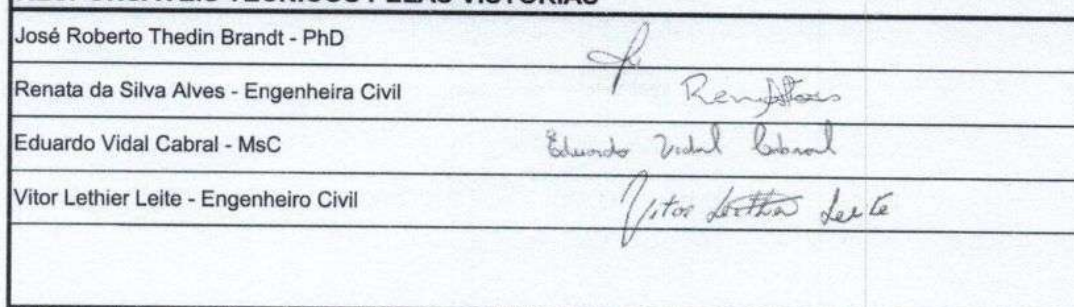 RESPONSÁVEIS TÉCNICOS PELAS VISTORIAS
José Roberto Thedin Brandt - PhD
Renata da Silva Alves - Engenheira Civil
Eduardo Vidal Cabral - MsC
Eduardo Vidal Cabral
Vitor Lethier Leite - Engenheiro Civil
Vitor Lethier Leite